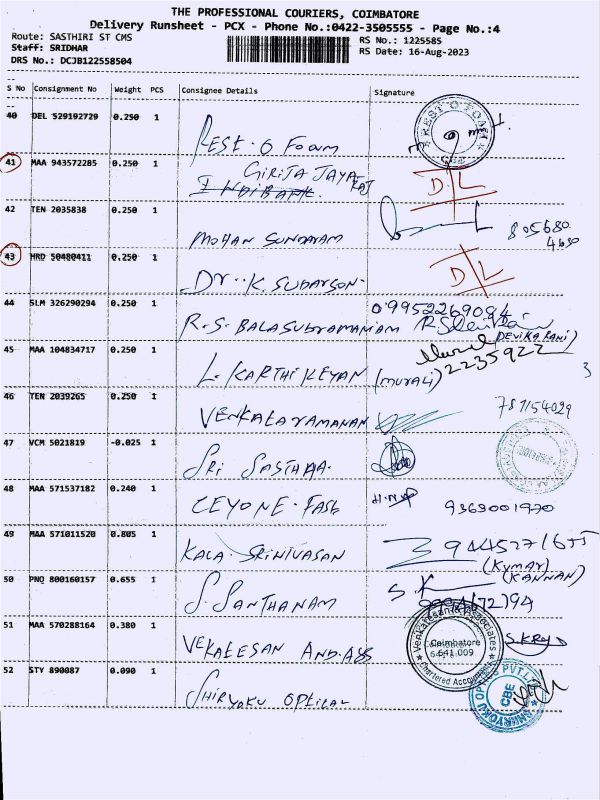 THE PROFESSIONAL COURIERS, COIMBATORE
Delivery Runsheet - PCX - Phone No.:0422-3505555 - Page No.:4
Route: SASTHIRI ST CMS
Staff: SRIDHAR
DRS No.: DCJB122558504
RS No.: 1225585
RS Date: 16-Aug-2023
S No Consignment No Weight PCS Consignee Details Signature
40 DEL 529192729 0.250 1 REST. O FOAM
REST O FOAM
CBE
41 MAA 943572285 0.250 1 GIRIJA JAYA RAJ D/L
INDIBANK
42 TEN 2035838 0.250 1 MOHAN SUNDARAM 805680
4680
43 HRD 50480411 0.250 1 DR. K. SUDARSON. D/L
44 SLM 326290294 0.250 1 R.S. BALASUBRAMANIAM 09952269084
(DEVIKA RANI)
45 MAA 104834717 0.250 1 L. KARTHIKEYAN (MURALI) 2235922
3
46 TEN 2039265 0.250 1 VENKATARAMANAN 787154029
47 VCM 5021819 -0.025 1 SRI SASTHAA
48 MAA 571537182 0.240 1 CEYONE. FAS 9363001970
49 MAA 571011520 0.805 1 KALA. SRINIVASAN
(KUMAR)
50 PNQ 800160157 0.655 1 S. SANTHANAM S.K (KANNAN)
51 MAA 570288164 0.380 1 VEKATESAN AND. ASS
Venkatesan & Associates
Coimbatore
641 009
Chartered Accountants
52 STY 890087 0.090 1 SHIRYOKU OPTICAL
SHIRYOKU OPTICS PVT.LTD
CBE